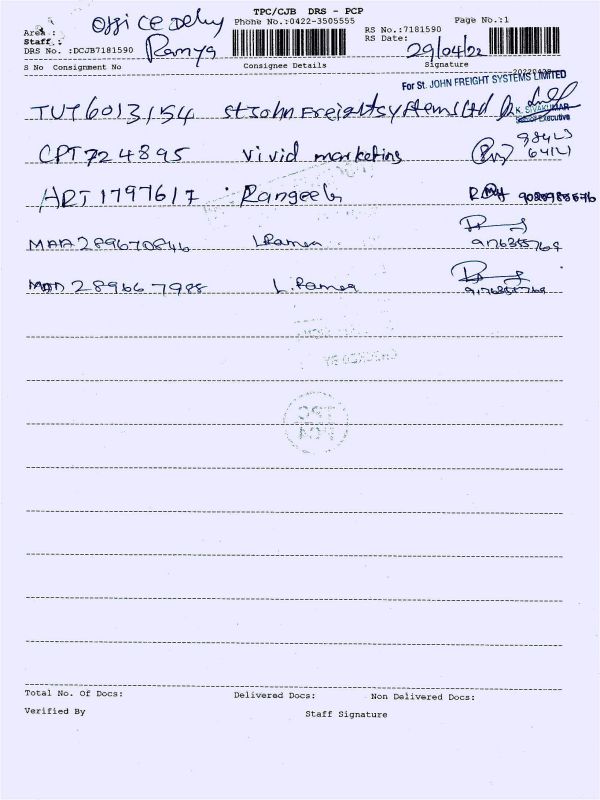 TPC/CJB DRS - PCP
Office Delvy
Phone No.:0422-3505555
Page No.:1
Area :
RS No.:7181590
Staff :
Ramya
RS Date:
29/04/22
DRS No. :DCJB7181590
S No Consignment No
Consignee Details
Signature
For St. JOHN FREIGHT SYSTEMS LIMITED
TUT6013154 St John Freight systems Ltd
K. SIVAKUMAR
Executive
CPT724895 vivid marketing
ART1797617
MAA289670846 L.Ramea
9176355769
MAA289667988 L.Ramea
CHECKED BY
TPC
Total No. Of Docs:
Delivered Docs:
Non Delivered Docs:
Verified By
Staff Signature